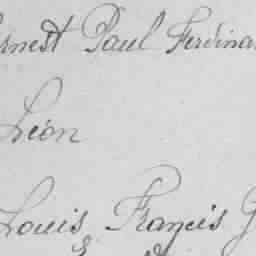 Ernest Paul Ferdina
Léon
Louis Francis G